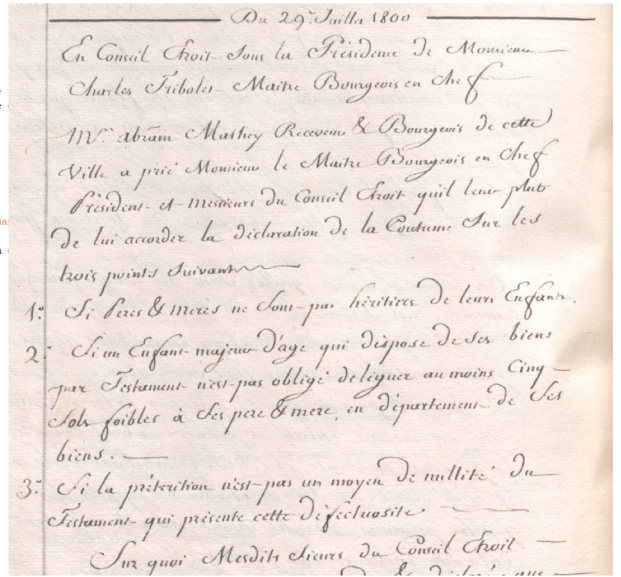 Du 29.e Juillet 1800
En Conseil Etroit Sous la Présidence de Monsieur
Charles Tribolet Maitre Bourgeois en Chef
Mr. abram Mathey Receveur & Bourgeois de cette
Ville a prié Monsieur le Maitre Bourgeois en Chef
Président et Messieurs du Conseil Etroit quil leur plut
de lui accorder la déclaration de la Coutume Sur les
trois points Suivant
1.o Si Peres & meres ne Sont pas héritiers de leurs Enfants.
2.o Si un Enfant majeur d'age qui dispose de Ses biens
par Testament n'est pas obligé de léguer au moins Cinq
Sols foibles à Ses pere & mere, en département de Ses
biens.
3.o Si la préterition n'est pas un moyen de nullité du
Testament qui présente cette défectuosité
Sur quoi Mesdits Sieurs du Conseil Etroit